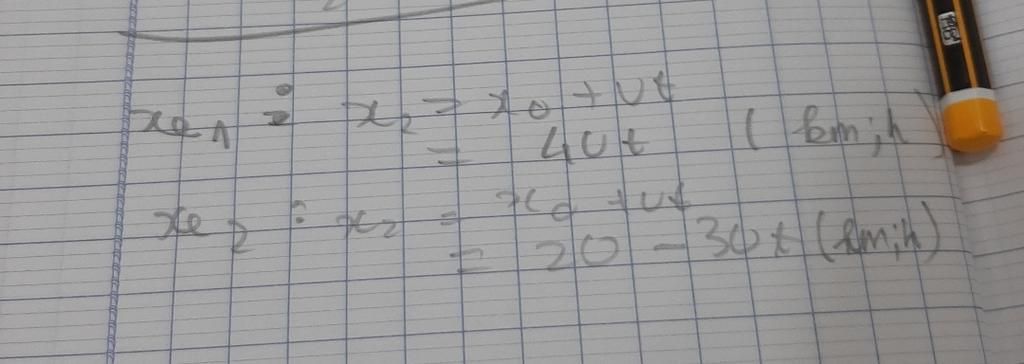 xe 1 : x₂ = x₀ + vt
= 40t (km; h)
xe 2 : x₂ = x₀ + vt
= 20 - 30t (km; h)